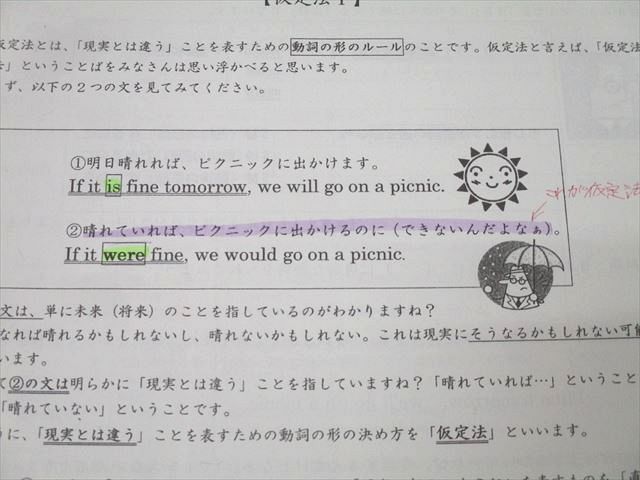 【仮定法1】
仮定法とは、「現実とは違う」ことを表すための動詞の形のルールのことです。仮定法と言えば、「仮定法
」ということばをみなさんは思い浮かべると思います。
ず、以下の2つの文を見てみてください。
①明日晴れれば、ピクニックに出かけます。
If it is fine tomorrow, we will go on a picnic.
これが仮定法
②晴れていれば、ピクニックに出かけるのに(できないんだよなぁ)。
If it were fine, we would go on a picnic.
文は、単に未来(将来)のことを指しているのがわかりますね?
なれば晴れるかもしれないし、晴れないかもしれない。これは現実にそうなるかもしれない可能
います。
て②の文は明らかに「現実とは違う」ことを指していますね?「晴れていれば…」ということ
「晴れていない」ということです。
うに、「現実とは違う」ことを表すための動詞の形の決め方を「仮定法」といいます。